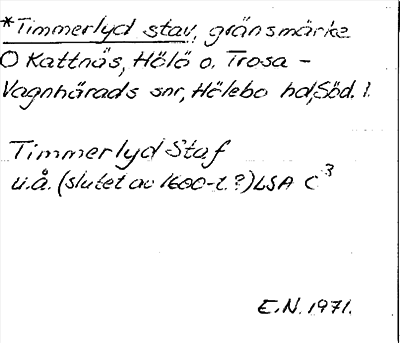 *Timmerlyd stav, gränsmärke
O Kattnäs, Hölö o. Trosa -
Vagnhärads snr, Hölebo hd, Söd. l.
Timmerlyd Staf
u.å. (slutet av 1600-t.?) LSA C³
E.N. 1971.